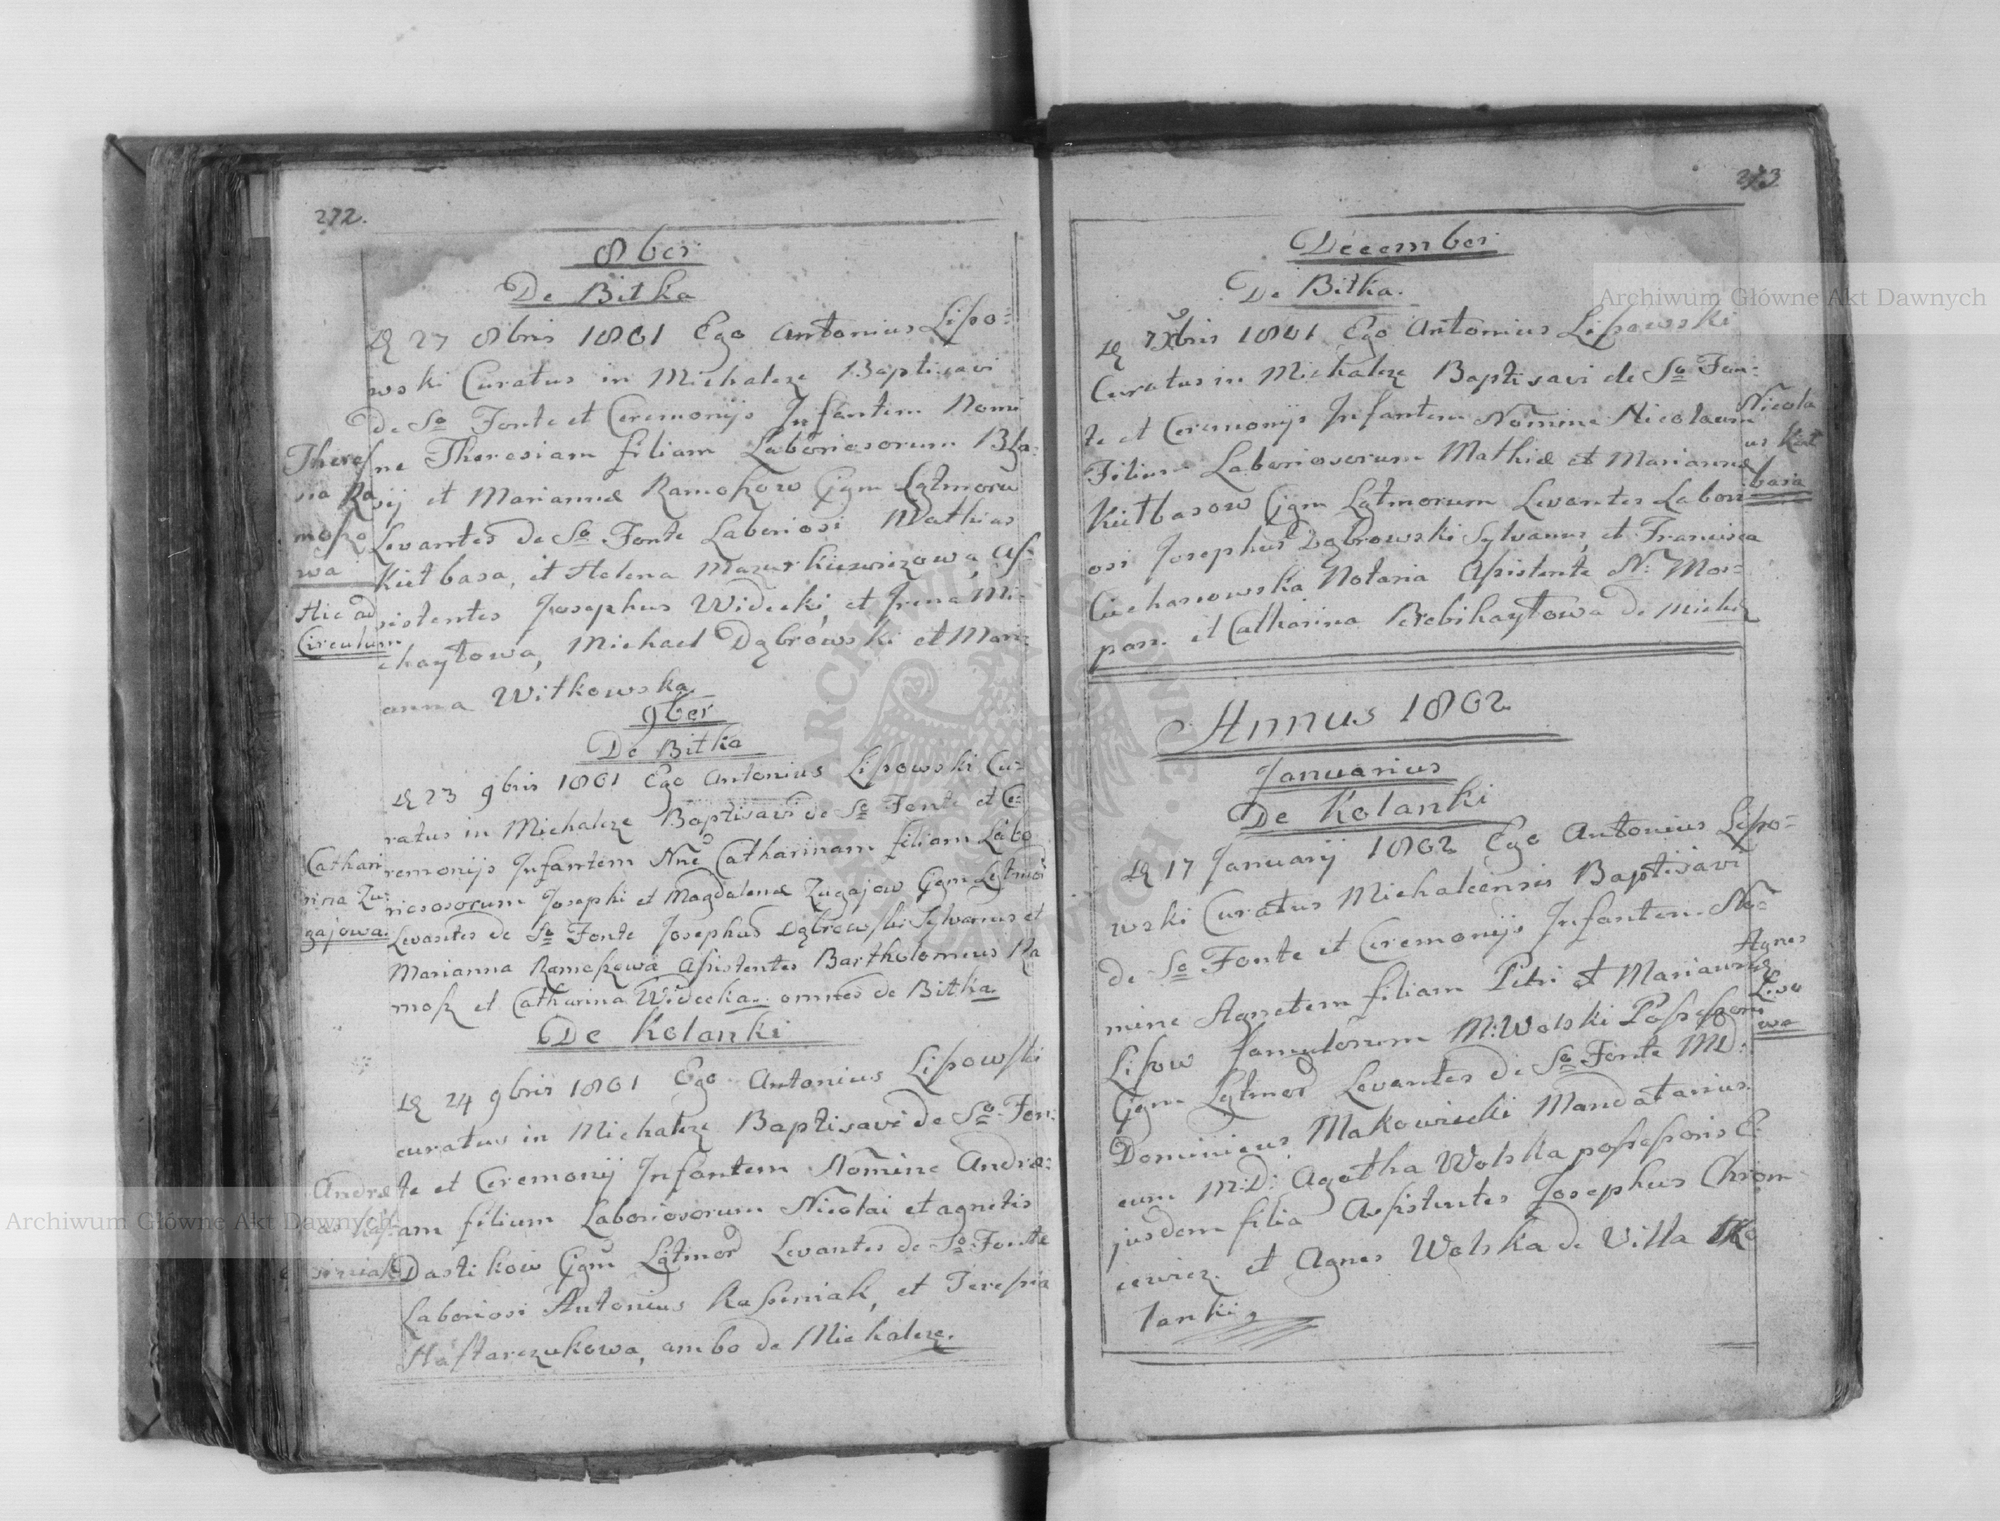 272.
8ber
De Bitka
27 8bris 1801 Ego Antonius Lipo=
wski Curatus in Michalcze Baptisavi
De So Fonte et Ceremonijs Infantem Nomi
ne Theresiam filiam Laboriosorum Bla=
sij et Mariannæ Ramoszow Cjgm Lgtmoru
Levantes de So Fonte Laboriosi Mathias
Kiełbasa, et Helena Mazurkiewiczowa, As=
sistentes Josephus Widecki, et Irena Mi=
chayłowa, Michael Dąbrówski et Mari=
anna Witkowska.
There
sia Ra
moszo
wa
Hic ad
Circulum
9ber
De Bitka
23 9bris 1801 Ego Antonius Lipowski Cu=
ratus in Michalcze Baptisavi de So Fonte et Ce=
remonijs Infantem Nne Catharinam filiam Labo
riosorum Josephi et Magdalenæ Zugajow Cjgm Lgtmor
Levantes de So Fonte Josephus Dąbrowski Sylvanus et
Marianna Ramoszowa Assistentes Bartholomeus Ra
mosz et Catharina Widecka omnes de Bitka.
Cathari
rina Zu=
gajowa.
De Kolanki
24 9bris 1801 Ego Antonius Lipowski
curatus in Michalcze Baptisavi de So Fon=
te et Ceremonij Infantem Nomine Andre=
am filium Laboriosorum Nicolai et agnetis
Dastikow Cjgm Lgtmor Levantes de So Fonte
Laboriosi Antonius Kasperniak, et Teresia
Haftarczukowa, ambo de Michalcze.
Andre
273
December
De Bitka.
7 Xbris 1801 Ego Antonius Lipowski
Curatus in Michalcze Baptisavi de So Fon=
te et Ceremonijs Infantem Nomine Nicolaum
Filium Laboriosorum Mathiæ et Mariannæ
Kiełbasow Cjgm Lgtmorum Levantes Labori
osi Josephus Dąbrowski Sylvanus, et Francisca
Ciechanowska Notaria Assistente N: Mos=
pan. et Catharina Perebihayłowa de Michcz
Nicola
us Kieł
basa
Annus 1802
Januarius
De Kolanki
17 Januarij 1802 Ego Antonius Lipo=
wski Curatus Michalcensis Baptisavi
de So Fonte et Ceremonijs Infantem No=
mine Agnetem filiam Petri et Mariannæ
Lisow famulorum M: Wolski Possessoris
Cjgm Lgtmor Levantes de So Fonte MD:
Dominicus Makowiecki Mandatarius
cum M:D: Agatha Wolska possessoris E=
jusdem filia Assistentes Josephus Chrom
cewicz. et Agnes Wolska de Villa Ko
lanki.
Agnes
Liso
wa
Archiwum Główne Akt Dawnych
Archiwum Główne Akt Dawnych